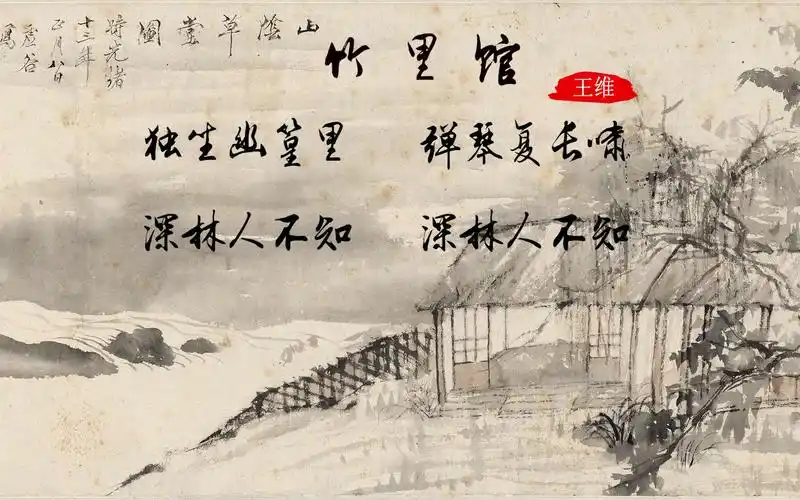 山陰草堂圖
時光緒
十三年
正月八日
虛谷寫
竹里馆
王维
独坐幽篁里 弹琴复长啸
深林人不知 深林人不知